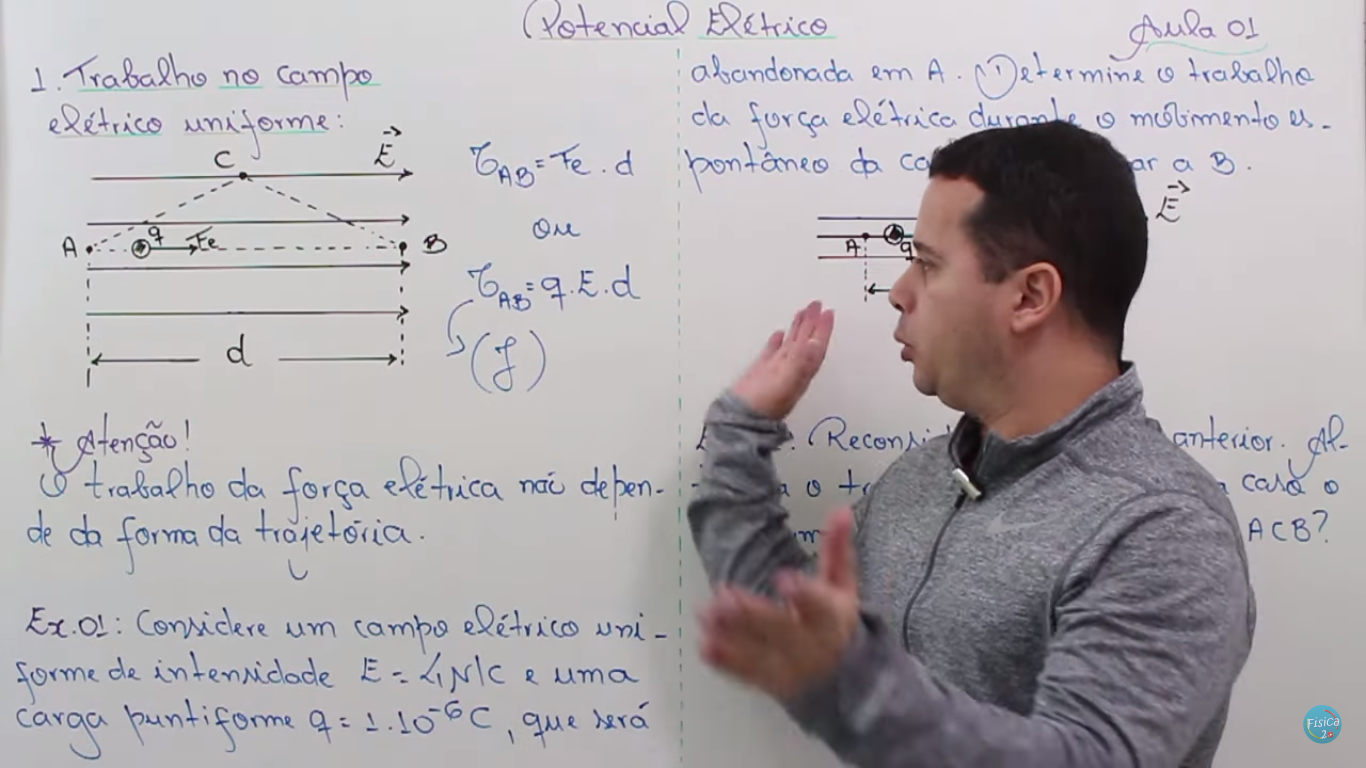 Potencial Elétrico
Aula 01
1. Trabalho no campo
elétrico uniforme:
C
E
A
q
Fe
B
d
τAB = Fe . d
ou
τAB = q . E . d
(J)
* Atenção!
O trabalho da força elétrica não depen-
de da forma da trajetória.
Ex.01: Considere um campo elétrico uni-
forme de intensidade E = 4N/C e uma
carga puntiforme q = 1.10⁻⁶C, que será
abandonada em A. Determine o trabalho
da força elétrica durante o movimento es-
pontâneo da ar a B.
E
A
q
Reconsid anterior. Al-
a o caso o
ACB?
Física
2.0